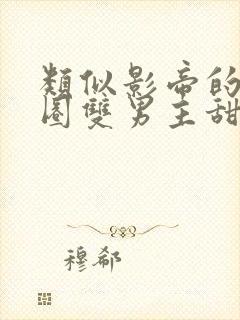 類似影帝的
圈雙男主甜
穆郗